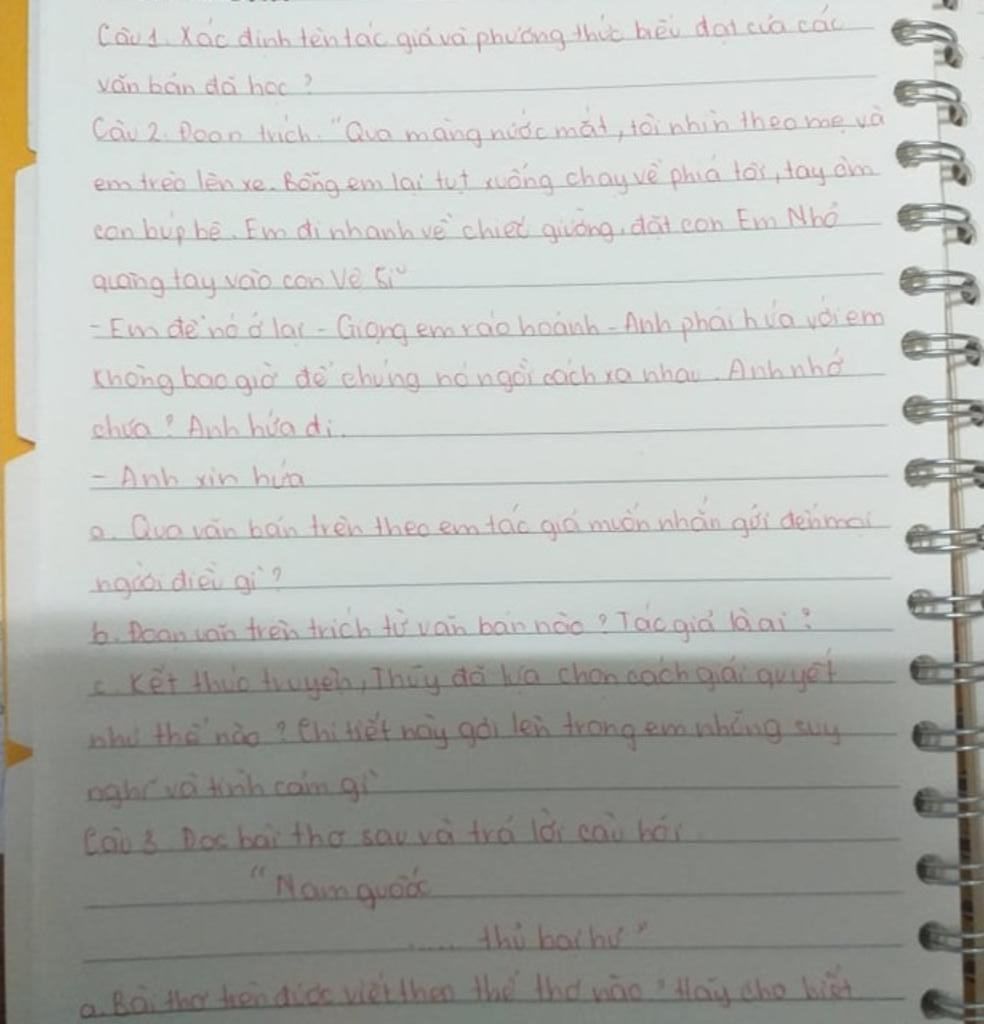 Câu 1. Xác định tên tác giả và phương thức biểu đạt của các
văn bản đã học?
Câu 2. Đoạn trích. "Qua màng nước mắt, tôi nhìn theo mẹ và
em trèo lên xe. Bỗng em lại tụt xuống chạy về phía tôi, tay ôm
con búp bê. Em đi nhanh về chiếc giường, đặt con Em Nhỏ
quàng tay vào con Vệ Sĩ"
- Em để nó ở lại - Giọng em ráo hoảnh - Anh phải hứa với em
không bao giờ để chúng nó ngồi cách xa nhau. Anh nhớ
chưa? Anh hứa đi.
- Anh xin hứa
a. Qua văn bản trên theo em tác giả muốn nhắn gửi đến mọi
người điều gì?
b. Đoạn văn trên trích từ văn bản nào? Tác giả là ai?
c. Kết thúc truyện, Thủy đã lựa chọn cách giải quyết
như thế nào? Chi tiết này gợi lên trong em những suy
nghĩ và tình cảm gì
Câu 3 Đọc bài thơ sau và trả lời câu hỏi
"Nam quốc
..... thủ bại hư"
a. Bài thơ trên được viết theo thể thơ nào? Hãy cho biết